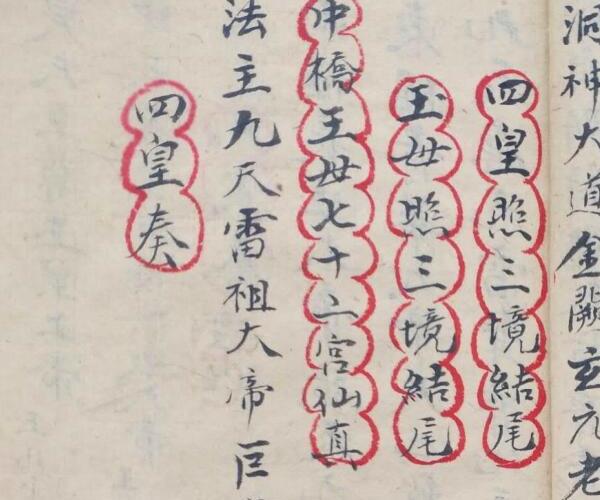 洞神大道金闕玄元老
四皇照三境結尾
玉母照三境結尾
中橋王母七十二宮仙真
法主九天雷祖大帝巨
四皇奏